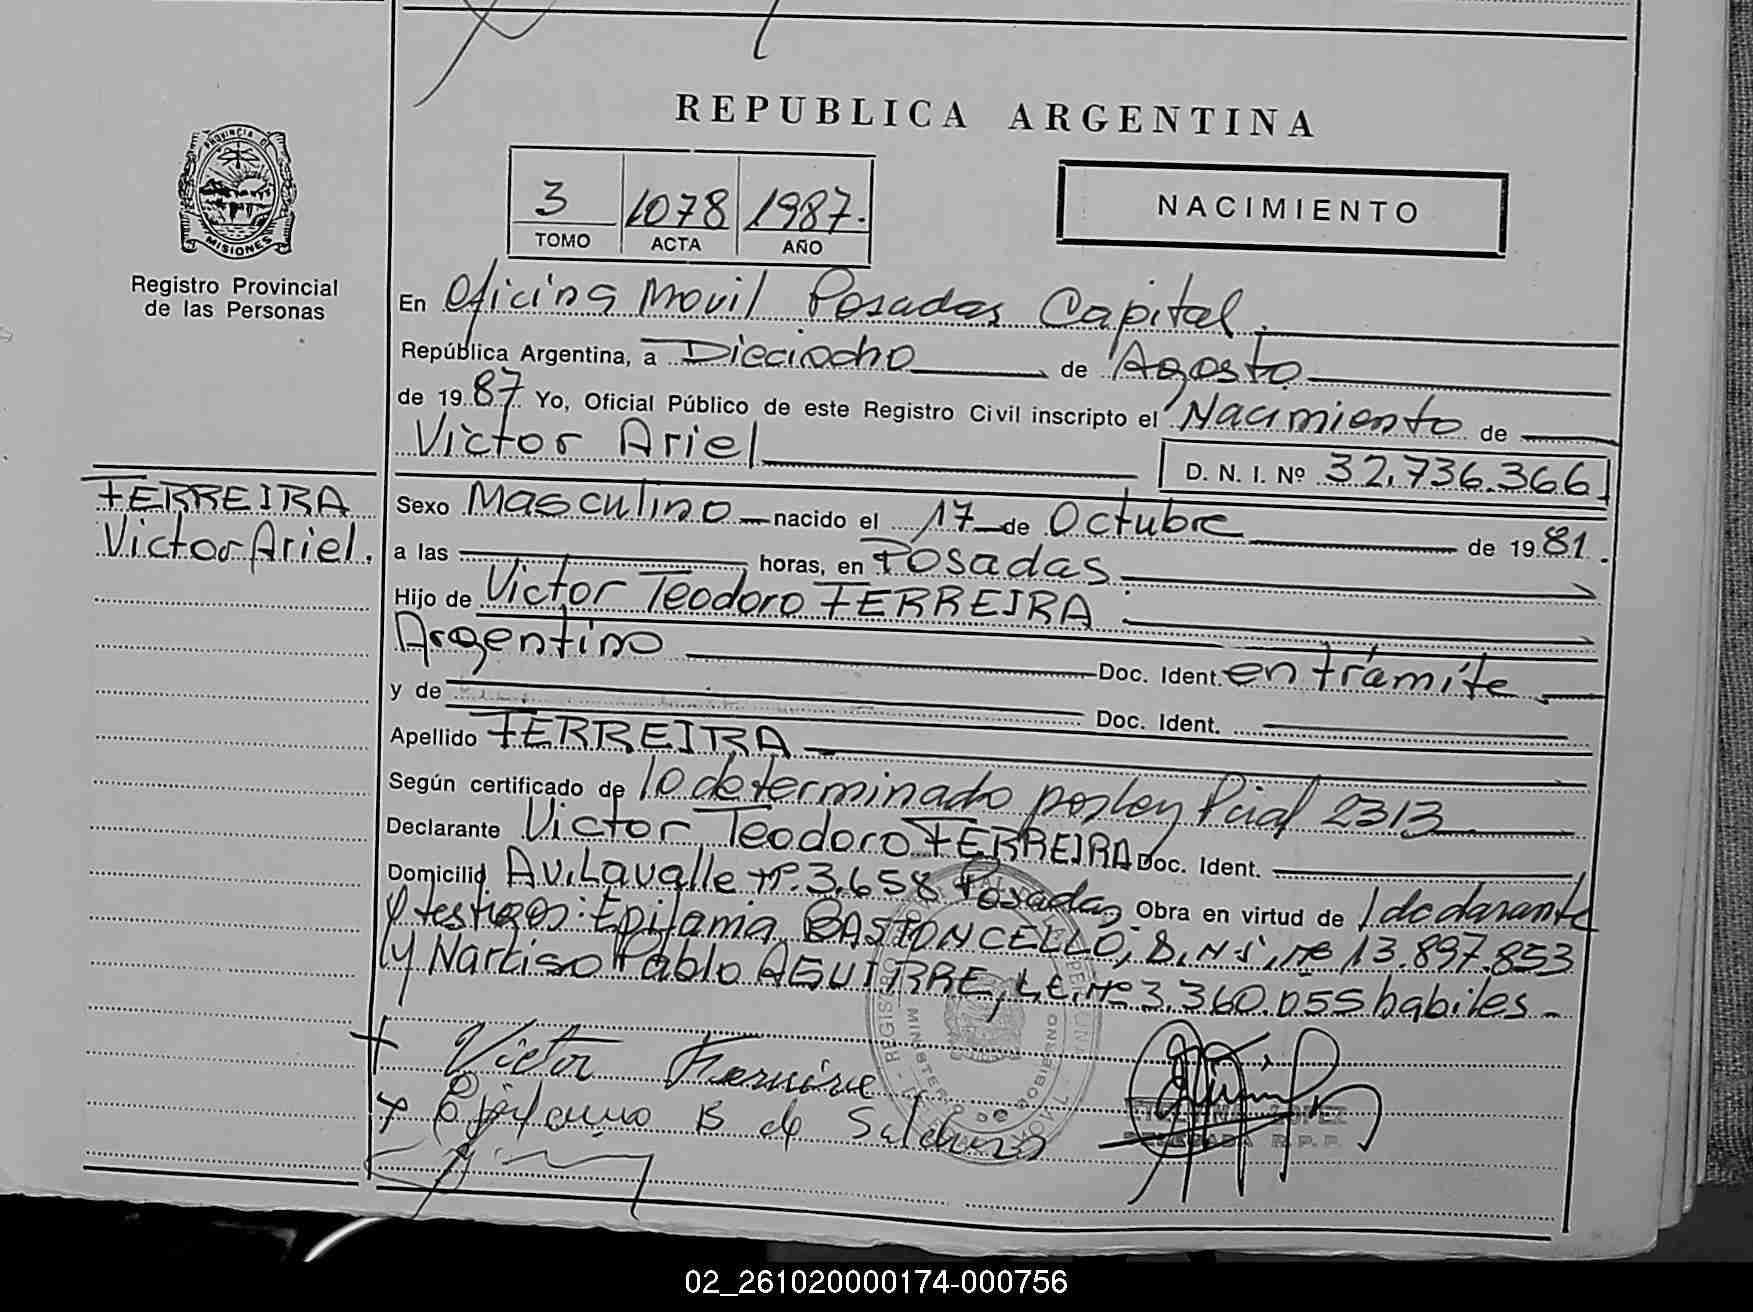 REPUBLICA ARGENTINA
PROVINCIA DE
MISIONES
Registro Provincial
de las Personas
3 1078 1987.
TOMO ACTA AÑO
NACIMIENTO
En Oficina Movil Posadas Capital.
República Argentina, a Dieciocho de Agosto
de 1987 Yo, Oficial Público de este Registro Civil inscripto el Nacimiento de
Victor Ariel D. N. I. Nº 32.736.366
FERREIRA
Victor Ariel.
Sexo Masculino nacido el 17 de Octubre de 1981.
a las horas, en Posadas
Hijo de Victor Teodoro FERREIRA
Argentino Doc. Ident. en trámite
y de Doc. Ident.
Apellido FERREIRA
Según certificado de lo determinado por ley Pcial 2313
Declarante Victor Teodoro FERREIRA Doc. Ident.
Domicilio Av. Lavalle nº. 3.658 Posadas Obra en virtud de l declarante
y testigos: Epifania BASTONCELLO, D.N.I. nº 13.897.853
y Narciso Pablo AGUIRRE, L.E. nº 3.360.055 habiles
Victor Ferreira
B de
MINISTERIO DE GOBIERNO
LOPEZ
DELEGADA R.P.P.
02_261020000174-000756